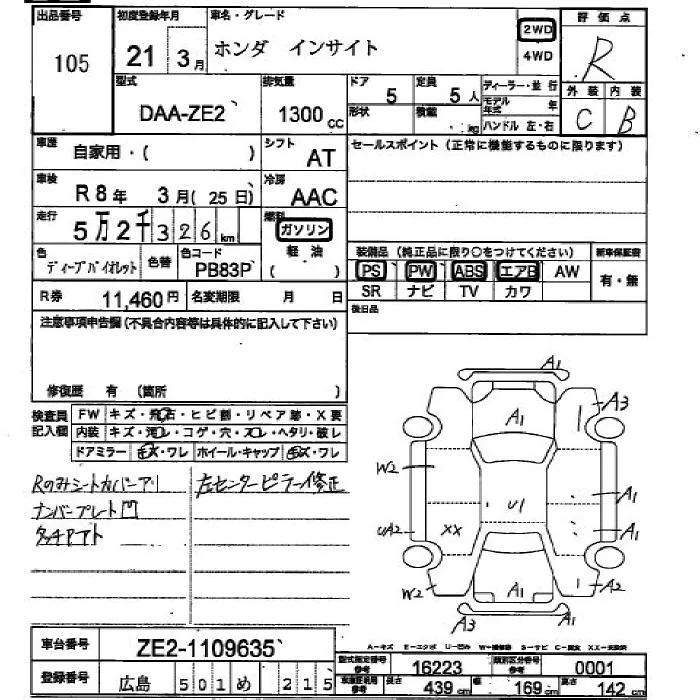 出品番号
105
初度登録年月
21 3月
車名・グレード
ホンダ インサイト
2WD
4WD
評価点
R
外装 内装
C B
型式
DAA-ZE2
排気量
1300cc
ドア
5
定員
5人
形状
積載
kg
ディーラー・並行
モデル年式 年
ハンドル 左・右
車歴
自家用・( )
シフト
AT
セールスポイント(正常に機能するものに限ります)
車検
R8年 3月(25日)
冷房
AAC
走行
5万2千326km
燃料
ガソリン
軽油
( )
色
ディープバイオレット
色替
色コード
PB83P
装備品 (純正品に限り○をつけてください)
PS PW ABS エアB AW
SR ナビ TV カワ
新車保証書
有・無
R券 11,460円
名変期限 月 日
後日品
注意事項申告欄(不具合内容等は具体的に記入して下さい)
修復歴 有 (箇所 )
検査員
記入欄
FW キズ・飛石・ヒビ割・リペア跡・X要
内装 キズ・汚レ・コゲ・穴・スレ・ヘタリ・破レ
ドアミラー キズ・ワレ ホイール・キャップ キズ・ワレ
Rのみシートカバーアリ
ナンバープレート凹
タッチアト
左センターピラー修正
A1
A1
A3
W2
U1
A1
UA2
XX
A1
W2
A1
A2
A3
A1
A-キズ E-エクボ U-凹み W-補修跡 S-サビ C-腐食 XX-交換済
車台番号
ZE2-1109635
登録番号
広島 501 め 215
型式指定番号
参考
16223
類別区分番号
参考
0001
車車証明用
参考
長さ
439cm
幅
169cm
高さ
142cm